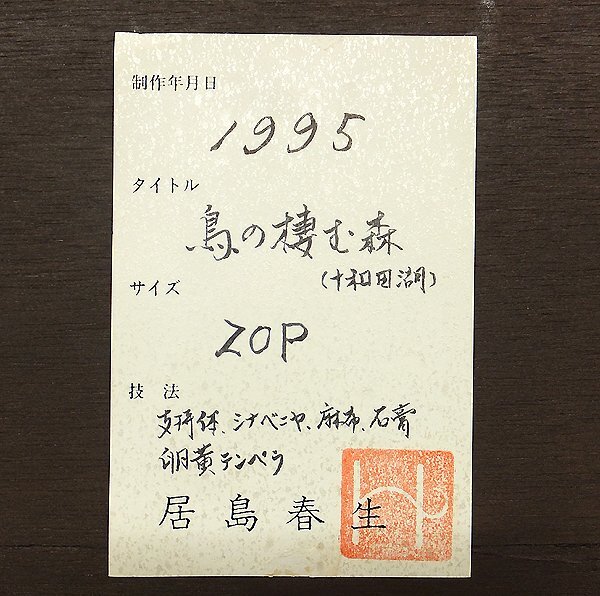 制作年月日
1995
タイトル
鳥の棲む森
(十和田湖)
サイズ
20P
技法
支持体、シナベニヤ、麻布、石膏
卵黄テンペラ
居島春生